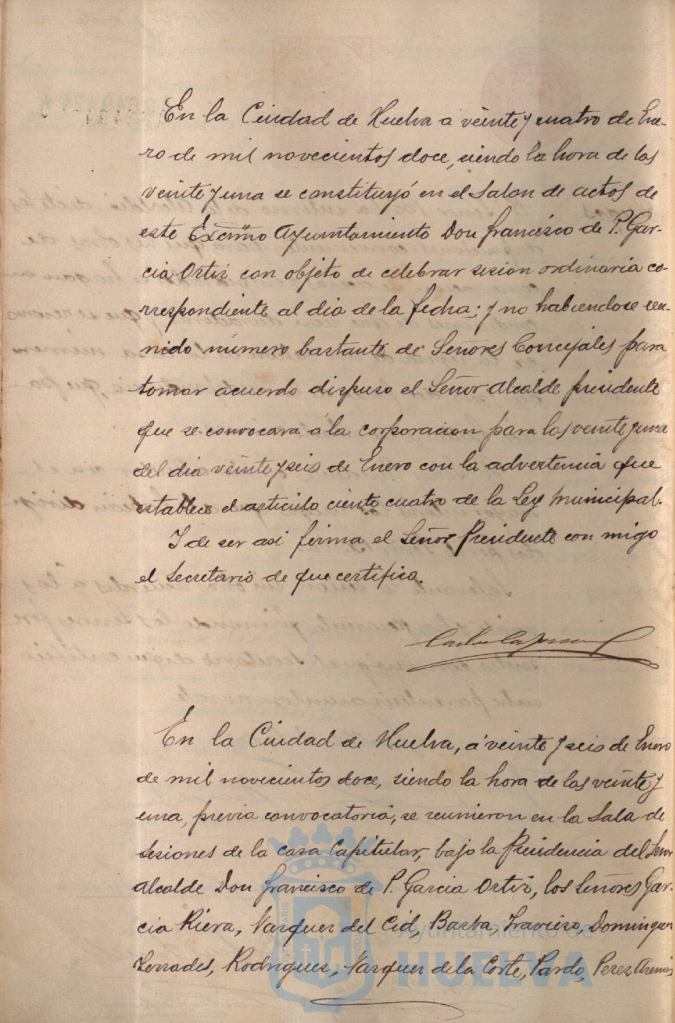 En la Ciudad de Huelva a veinte y cuatro de Ene-
ro de mil novecientos doce, siendo la hora de las
veinte y una se constituyó en el Salon de actos de
este Excmo Ayuntamiento Don Francisco de P. Gar-
cia Ortiz con objeto de celebrar sesion ordinaria co-
rrespondiente al dia de la fecha; y no habiendose reu-
nido número bastante de Señores Concejales para
tomar acuerdo dispuso el Señor Alcalde presidente
que se convocara á la corporacion para las veinte y una
del dia veinte y seis de Enero con la advertencia que
establece el articulo ciento cuatro de la Ley Municipal.
Y de ser asi firma el Señor Presidente con migo
el Secretario de que certifico.
En la Ciudad de Huelva, á veinte y seis de Enero
de mil novecientos doce, siendo la hora de las veinte y
una, previa convocatoria, se reunieron en la Sala de
Sesiones de la casa Capitular, bajo la Presidencia del Señor
Alcalde Don Francisco de P. Garcia Ortiz, los Señores Gar-
cia Riera, Vazquez del Cid, Barba, Travieso, Dominguez
Rodriguez, Vazquez de la Corte, Pardo, Perez
Ayuntamiento de
HUELVA